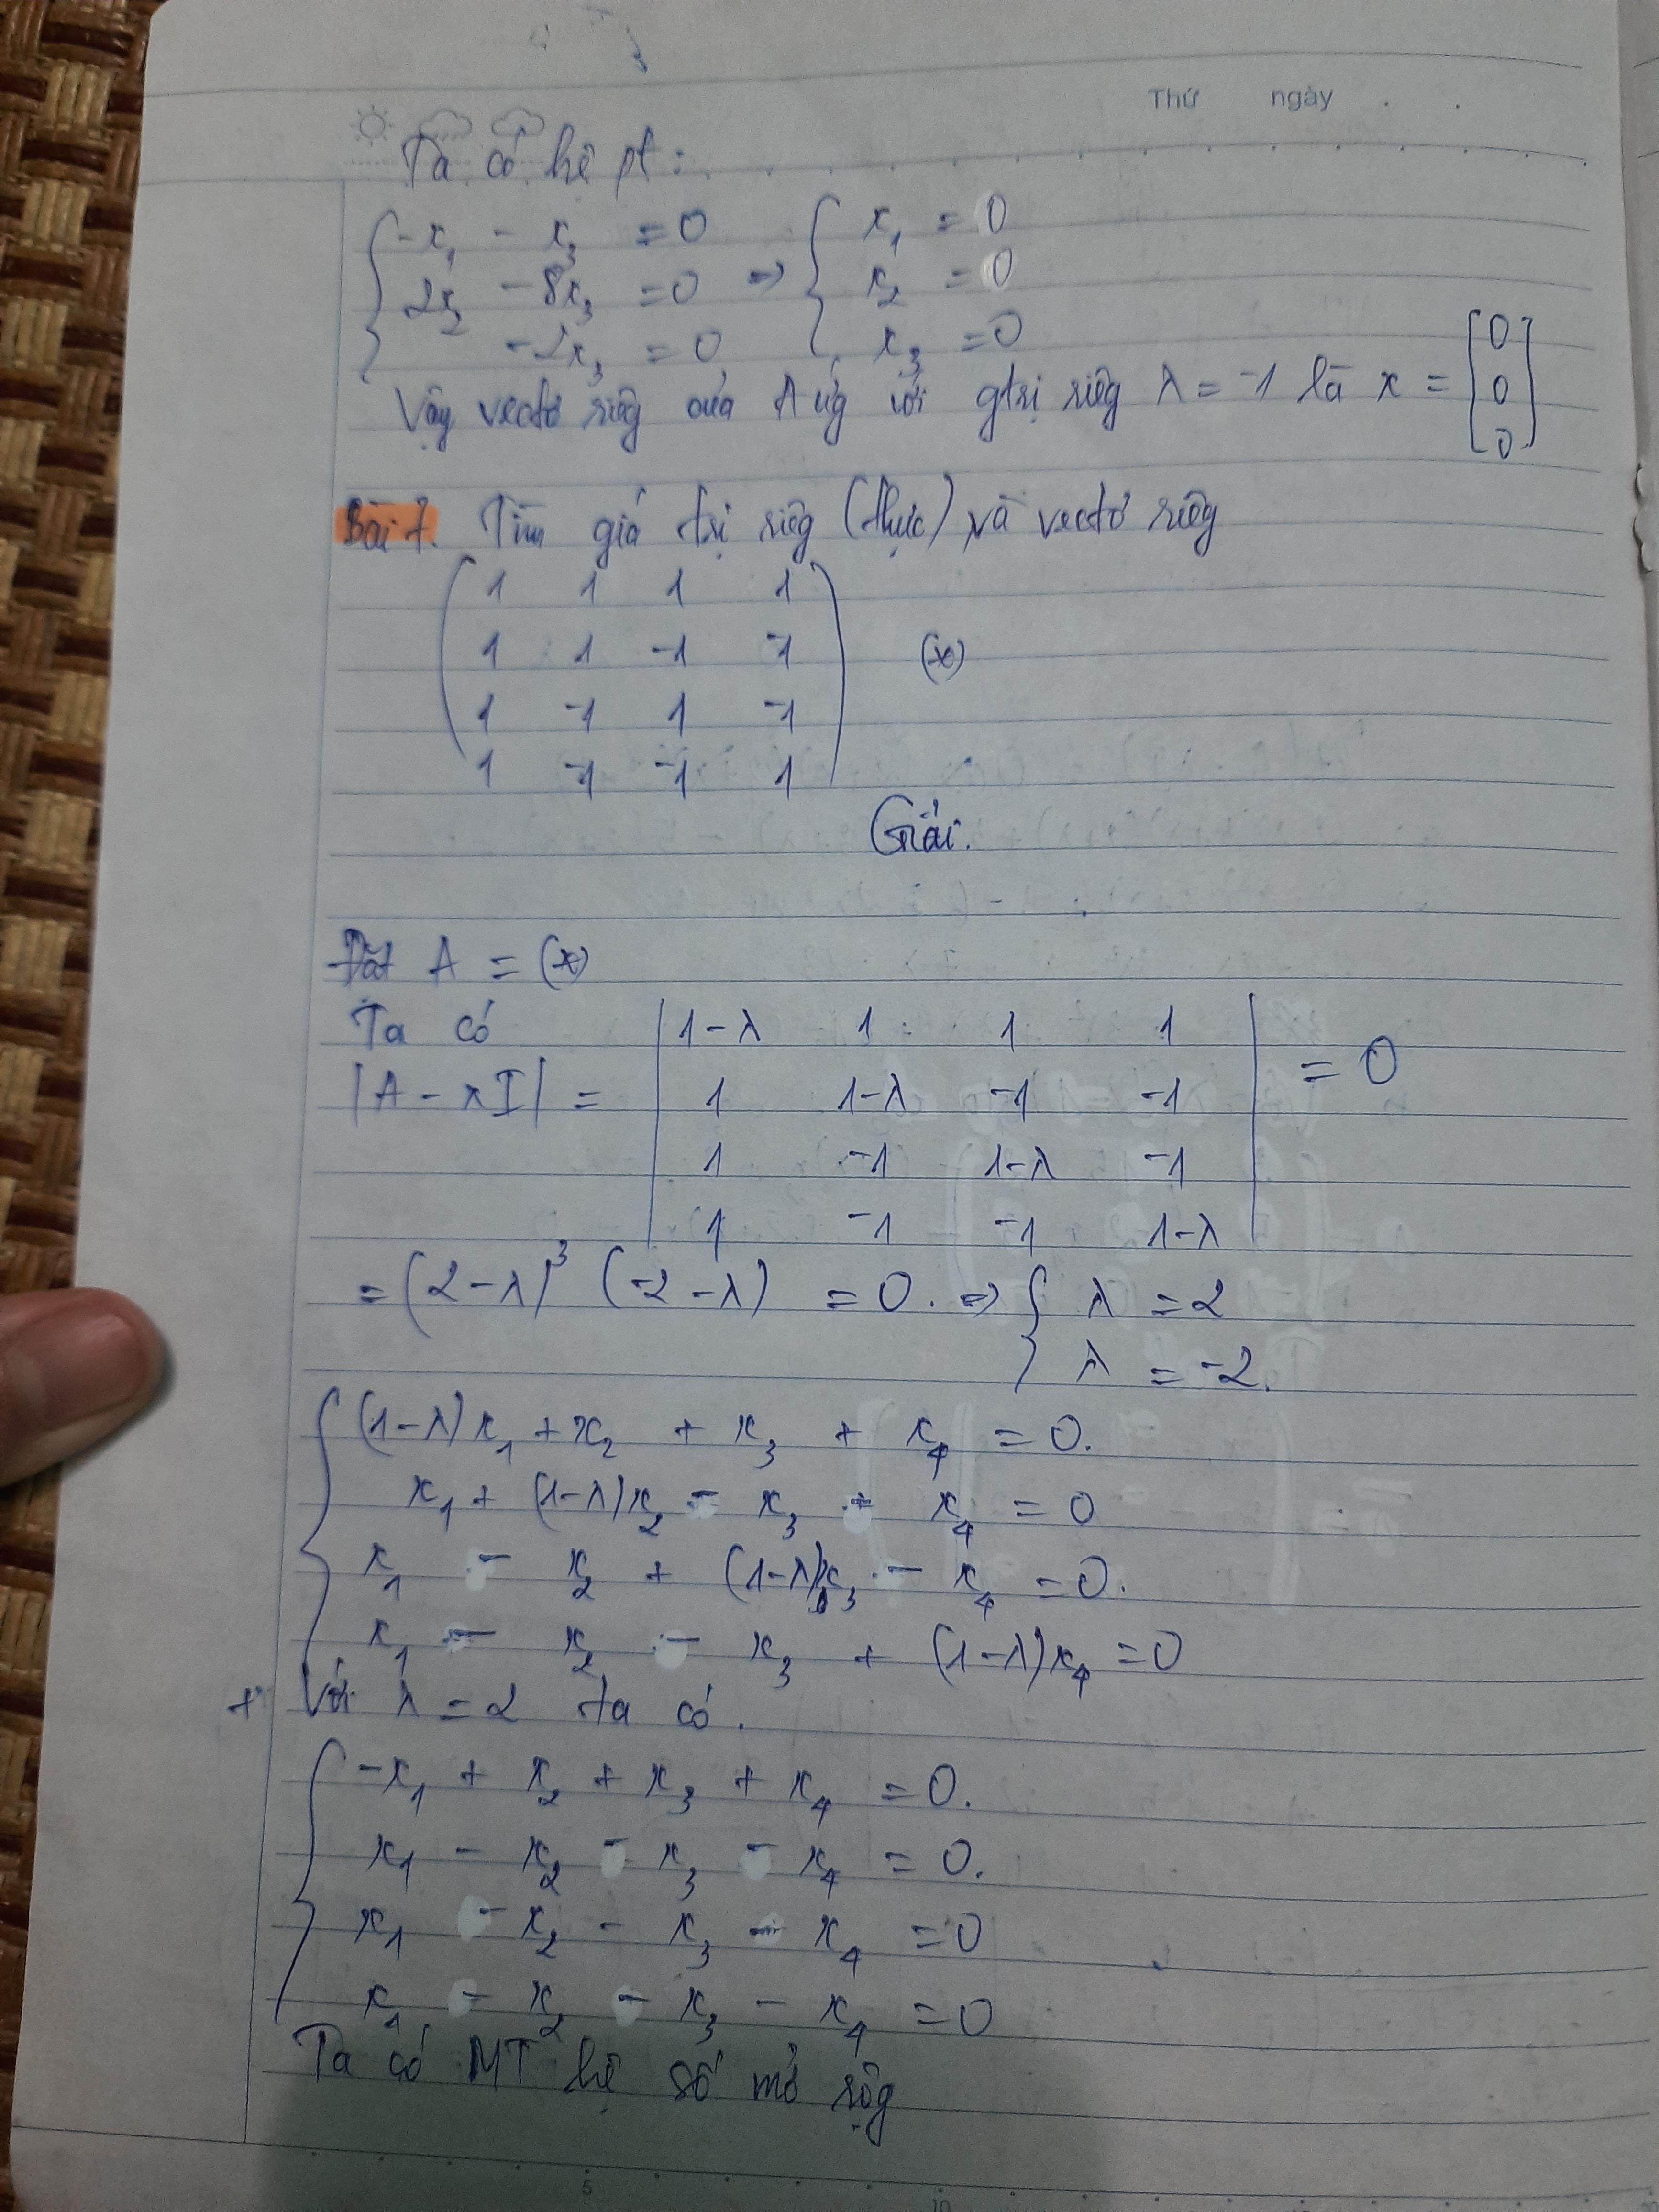 Thứ ngày
Ta có hệ pt:
-x₁ - x₃ = 0 ⇒ x₁ = 0
2x₂ - 8x₃ = 0 x₂ = 0
-2x₃ = 0 x₃ = 0
Vậy vectơ riêg của A ứg với gtrị riêg λ = -1 là x = [0 0 0]
Bài 7. Tìm giá trị riêg (thực) và vectơ riêg
1 1 1 1
1 1 -1 -1 (*)
1 -1 1 -1
1 -1 -1 1
Giải.
Đặt A = (*)
Ta có
|A - λI| = | 1-λ 1 1 1 | = 0
1 1-λ -1 -1
1 -1 1-λ -1
1 -1 -1 1-λ
= (2-λ)³ (-2-λ) = 0. ⇒ { λ = 2
λ = -2.
(1-λ)x₁ + x₂ + x₃ + x₄ = 0.
x₁ + (1-λ)x₂ - x₃ - x₄ = 0
x₁ - x₂ + (1-λ)x₃ - x₄ = 0.
x₁ - x₂ - x₃ + (1-λ)x₄ = 0
+ Với λ = 2 ta có.
-x₁ + x₂ + x₃ + x₄ = 0.
x₁ - x₂ - x₃ - x₄ = 0.
x₁ - x₂ - x₃ - x₄ = 0
x₁ - x₂ - x₃ - x₄ = 0
Ta có MT hệ số mở rộg
5 10